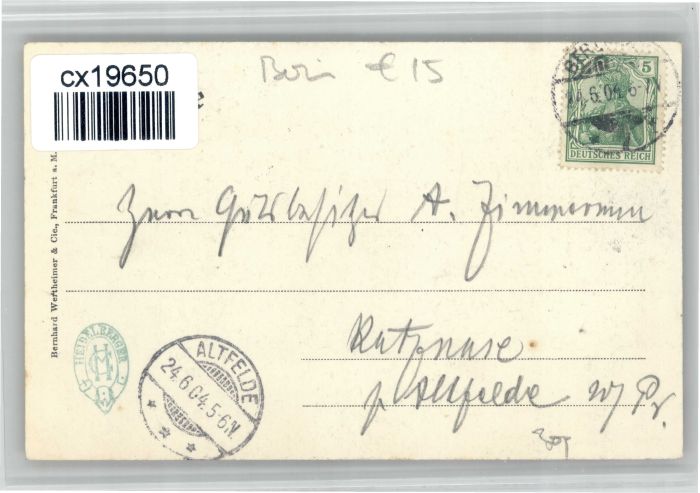 cx19650
€ 15
5
DEUTSCHES REICH
.6.04.6-7N
Herrn Gutsbesitzer A. Zimmermann
Katznase
p. Altfelde W/Pr.
Bernhard Wertheimer & Cie., Frankfurt a. M.
HEIDELBERGER
ALTFELDE
24.6.04.5-6N.